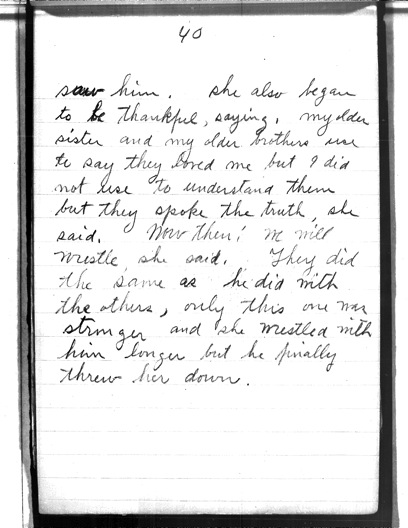 40
saw him. She also began
to be thankful, saying, my older
sister and my older brothers use
to say they loved me but I did
not use to understand them
but they spoke the truth, she
said. Now then! We will
wrestle, she said. They did
the same as he did with
the others, only this one was
stronger and she wrestled with
him longer but he finally
threw her down.